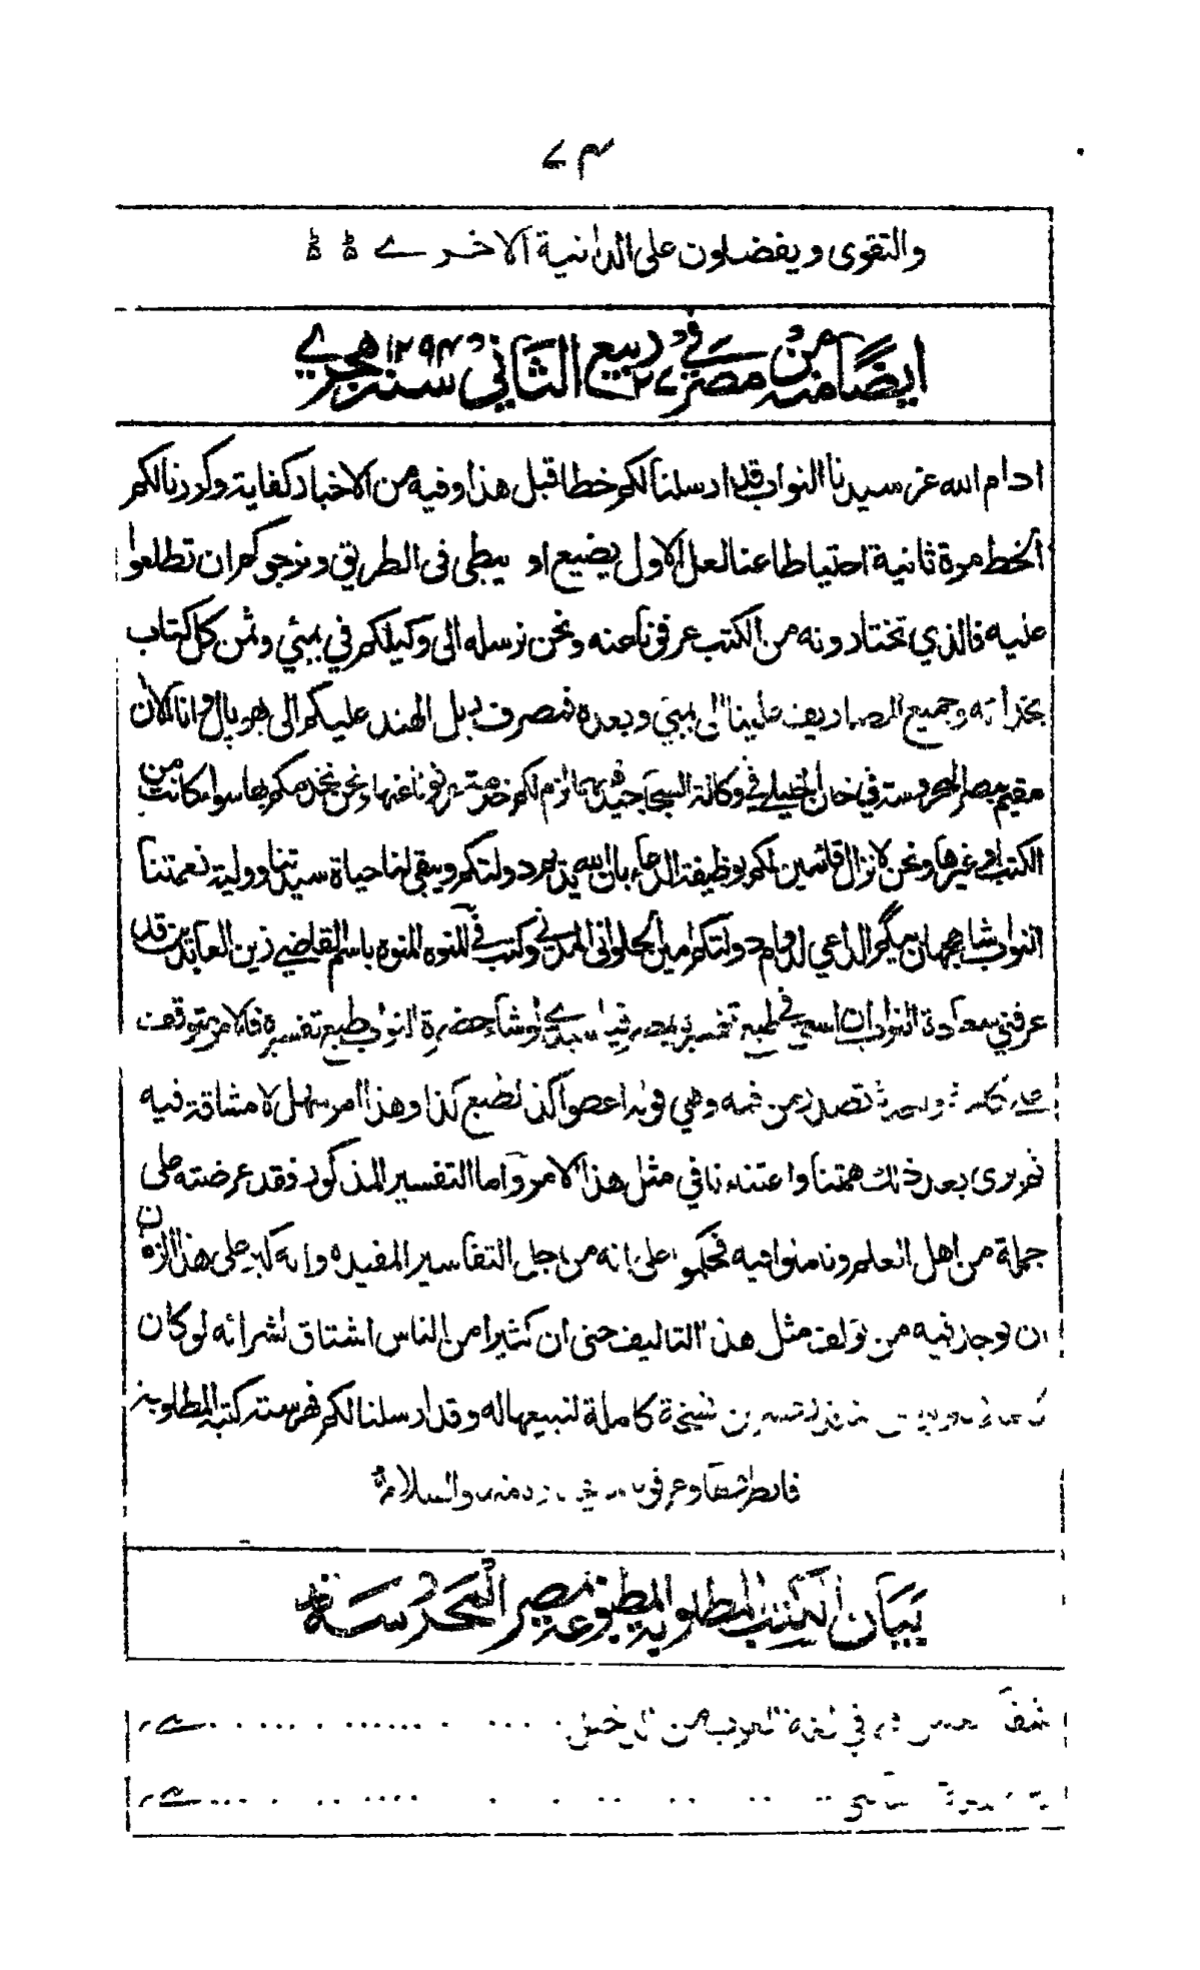 ۷۴
والتقوى ويفضلون على الدانية الاخرے
ايضاً منه من مصر في ۲۷ ربيع الثاني سنة ۱۲۹۴ هجرے
ادام الله عز سيدنا النواب قد ارسلنا لكم خطا قبل هذا وفيه من الاخبار كفاية وكررنا لكم
الخط مرة ثانية احتياطا عنا لعل الاول يضيع او يبطى فى الطريق ونرجوكم ان تطلعوا
عليه فالذي تختارونه من الكتب عرفونا عنه ونحن نرسله الى وكيلكم في بمبئي وثمن كل كتاب
بخزانته وجميع المصاريف علينا الى بمبئي وبعده فمصرف ريل الهند عليكم الى بهوپال وانا الآن
مقيم بمصر المحروسة في خان الخليلي في وكالة مهما لزم لكم خدمة عرفونا عنها ونحن نخدمكم بها سواء كانت من
الكتب او غيرها ونحن لا نزال قائمين لكم بوظيفة الدعاء بان الله يديم دولتكم ويبقى لنا حياة سيدتنا وولية نعمتنا
النواب شاهجهان بيگم الداعي لدوام دولتكم امين الحلوانى المدني وكتب في المنوه باسم القاضي زين العابدين قد
عرفني سعادة النواب ان اسعى في طبع تفسيره بمصر فيا سيدي لو شاء حضرة النواب طبع تفسيره فالامر متوقف
على كلمة واحدة تصدر من فمه وهي قوله اعطوا كذا لطبع كذا وهذا امر سهل لا مشاقة فيه
ثم يرى بعد ذلك همتنا واعتناءنا في مثل هذا الامر واما التفسير المذكور فقد عرضته على
جملة من اهل العلم وتاملوا فيه فحكموا على انه من اجل التفاسير المفيده وانه كبير على هذا الزمان
ان يوجد فيه من يؤلف مثل هذا التاليف حتى ان كثيرا من الناس اشتاق لشرائه لو كان
نسخة كاملة لنبيعها له وقد ارسلنا لكم فهرسة كتب المطلوبة
والسلام
بيان الكتب المطلوبة المطبوعة بمصر المحروسة
في لغة العرب من